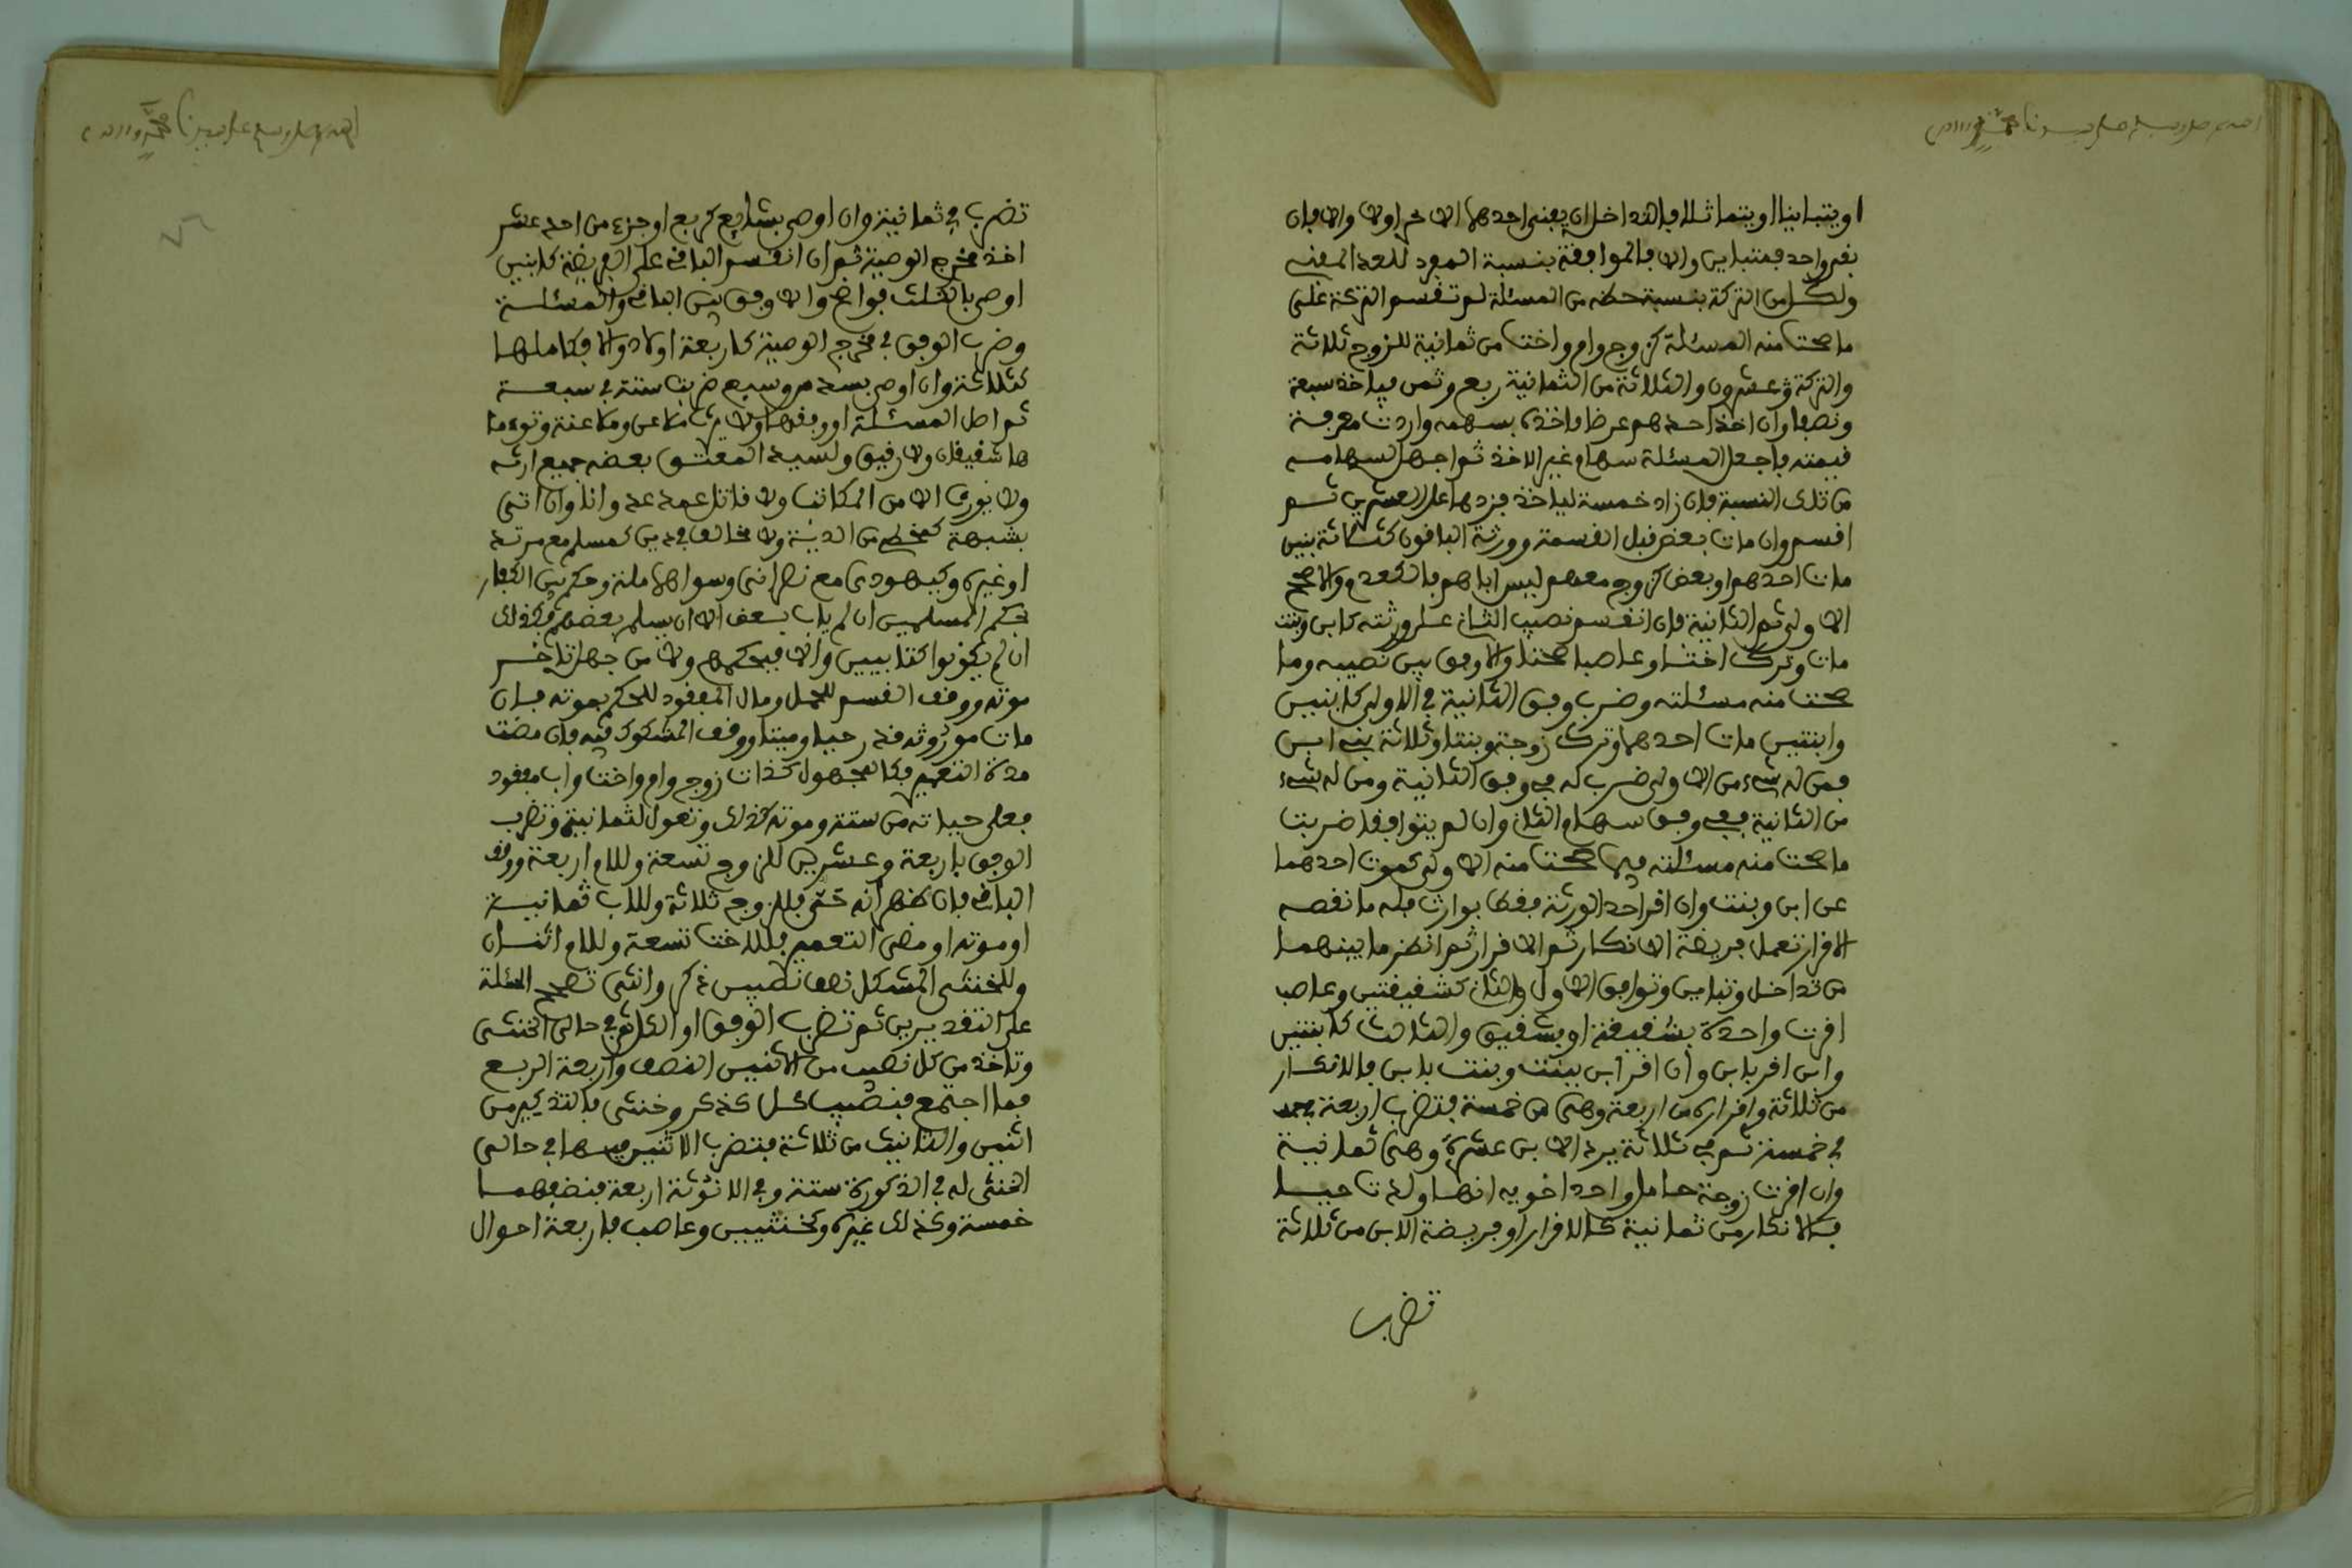 او يتباينا او يتماثلا فالتداخل ان يفني احدهما الاخر اولا والا فان
بقي واحد فمتباين والا فالموافقة بنسبة المفرد للعدد المفني
ولكل من التركة بنسبة حظه من المسئلة لم تقسم التركة على
ما صحت منه المسئلة كزوج وام واخت من ثمانية للزوج ثلاثة
والتركة عشرون والثلاثة من الثمانية ربع وثمن فياخذ سبعة
ونصفا وان اخذ احدهم عرضا فاخذه بسهمه واردت معرفة
قيمته فاجعل المسئلة سهام غير الاخذ ثم اجعل لسهامه
من تلك النسبة فان زاد خمسة لياخذ فزدها على العشرين ثم
اقسم وان مات بعض قبل القسمة وورثه الباقون كثلاثة بنين
مات احدهم او بعض كزوج معهم ليس اباهم فكالعدم والا صحح
الاولى ثم الثانية فان انقسم نصيب الثاني على ورثته كابن وبنت
مات وترك اختا وعاصبا صحتا والا وفق بين نصيبه وما
صحت منه مسئلته وضرب وفق الثانية في الاولى كابنين
وابنتين مات احدهما وترك زوجة وبنتا وثلاثة بني ابن
فمن له شيء من الاولى ضرب له في وفق الثانية ومن له شيء
من الثانية ففي وفق سهام الثاني وان لم يتوافقا ضربت
ما صحت منه مسئلته فيما صحت منه الاولى كموت احدهما
عن ابن وبنت وان اقر احد الورثة فقط بوارث فله ما نقصه
الاقرار تعمل فريضة الانكار ثم الاقرار ثم انظر ما بينهما
من تداخل وتباين وتوافق الاول والثاني كشقيقتين وعاصب
اقرت واحدة بشقيقة او بشقيق والثالث كابنتين
وابن اقر بابن وان اقر ابن ببنت وبنت بابن فالانكار
من ثلاثة واقراره من اربعة وهي من خمسة فتضرب اربعة
في خمسة ثم في ثلاثة يرد الابن عشرة وهي ثمانية
وان اقرت زوجة حامل واحد اخويه انها ولدت حيا
فالانكار من ثمانية كالاقرار او فريضة الابن من ثلاثة
تضرب
تضرب في ثمانية وان اوصى بشايع كربع او جزء من احد عشر
اخذ مخرج الوصية ثم ان انقسم الباقي على الفريضة كابنين
اوصى بالثلث فواضح والا وفق بين الباقي والمسئلة
وضرب الوفق في مخرج الوصية كاربعة اولاد والا فكاملها
كثلاثة وان اوصى بسدس وسبع ضربت ستة في سبعة
ثم اصل المسئلة او وفقها ولا يرث ملاعن وملاعنة وتوءما
ها شقيقان ولا رقيق ولسيد المعتق بعضه جميع ارثه
ولا يورث الا من المكاتب ولا قاتل عمد عدوانا وان اتى
بشبهة كمخطئ من الدية ولا مخالف في دين كمسلم مع مرتد
او غيره وكيهودي مع نصراني وسواهما ملة وحكم بين الكفار
بحكم المسلمين ان لم ياب بعض الا ان يسلم بعضهم فكذلك
ان لم يكونوا كتابيين والا فبحكمهم ولا من جهل تاخر
موته ووقف القسم للحمل ومال المفقود للحكم بموته فان
مات موروثه قدر حيا وميتا ووقف المشكوك فيه فان مضت
مدة التعمير فكالمجهول كذات زوج وام واخت واب مفقود
فعلى حياته من ستة وموته كذلك وتعول لثمانية وتضرب
الوفق باربعة وعشرين للزوج تسعة وللام اربعة ووقف
الباقي فان ظهر انه حي فللزوج ثلاثة وللاب ثمانية
او موته او مضى التعمير فللاخت تسعة وللام اثنان
وللخنثى المشكل نصف نصيبي ذكر وانثى تصحح المسئلة
على التقديرين ثم تضرب الوفق او الكل ثم في حالتي الخنثى
وتاخذ من كل نصيب من الاثنين النصف واربعة الربع
فما اجتمع فنصيب كل كذكر وخنثى فالتذكير من
اثنين والتانيث من ثلاثة فتضرب الاثنين فيها في حالتي
الخنثى له في الذكورة ستة وفي الانوثة اربعة فنصفهما
خمسة وكذلك غيره وكخنثيين وعاصب فاربعة احوال